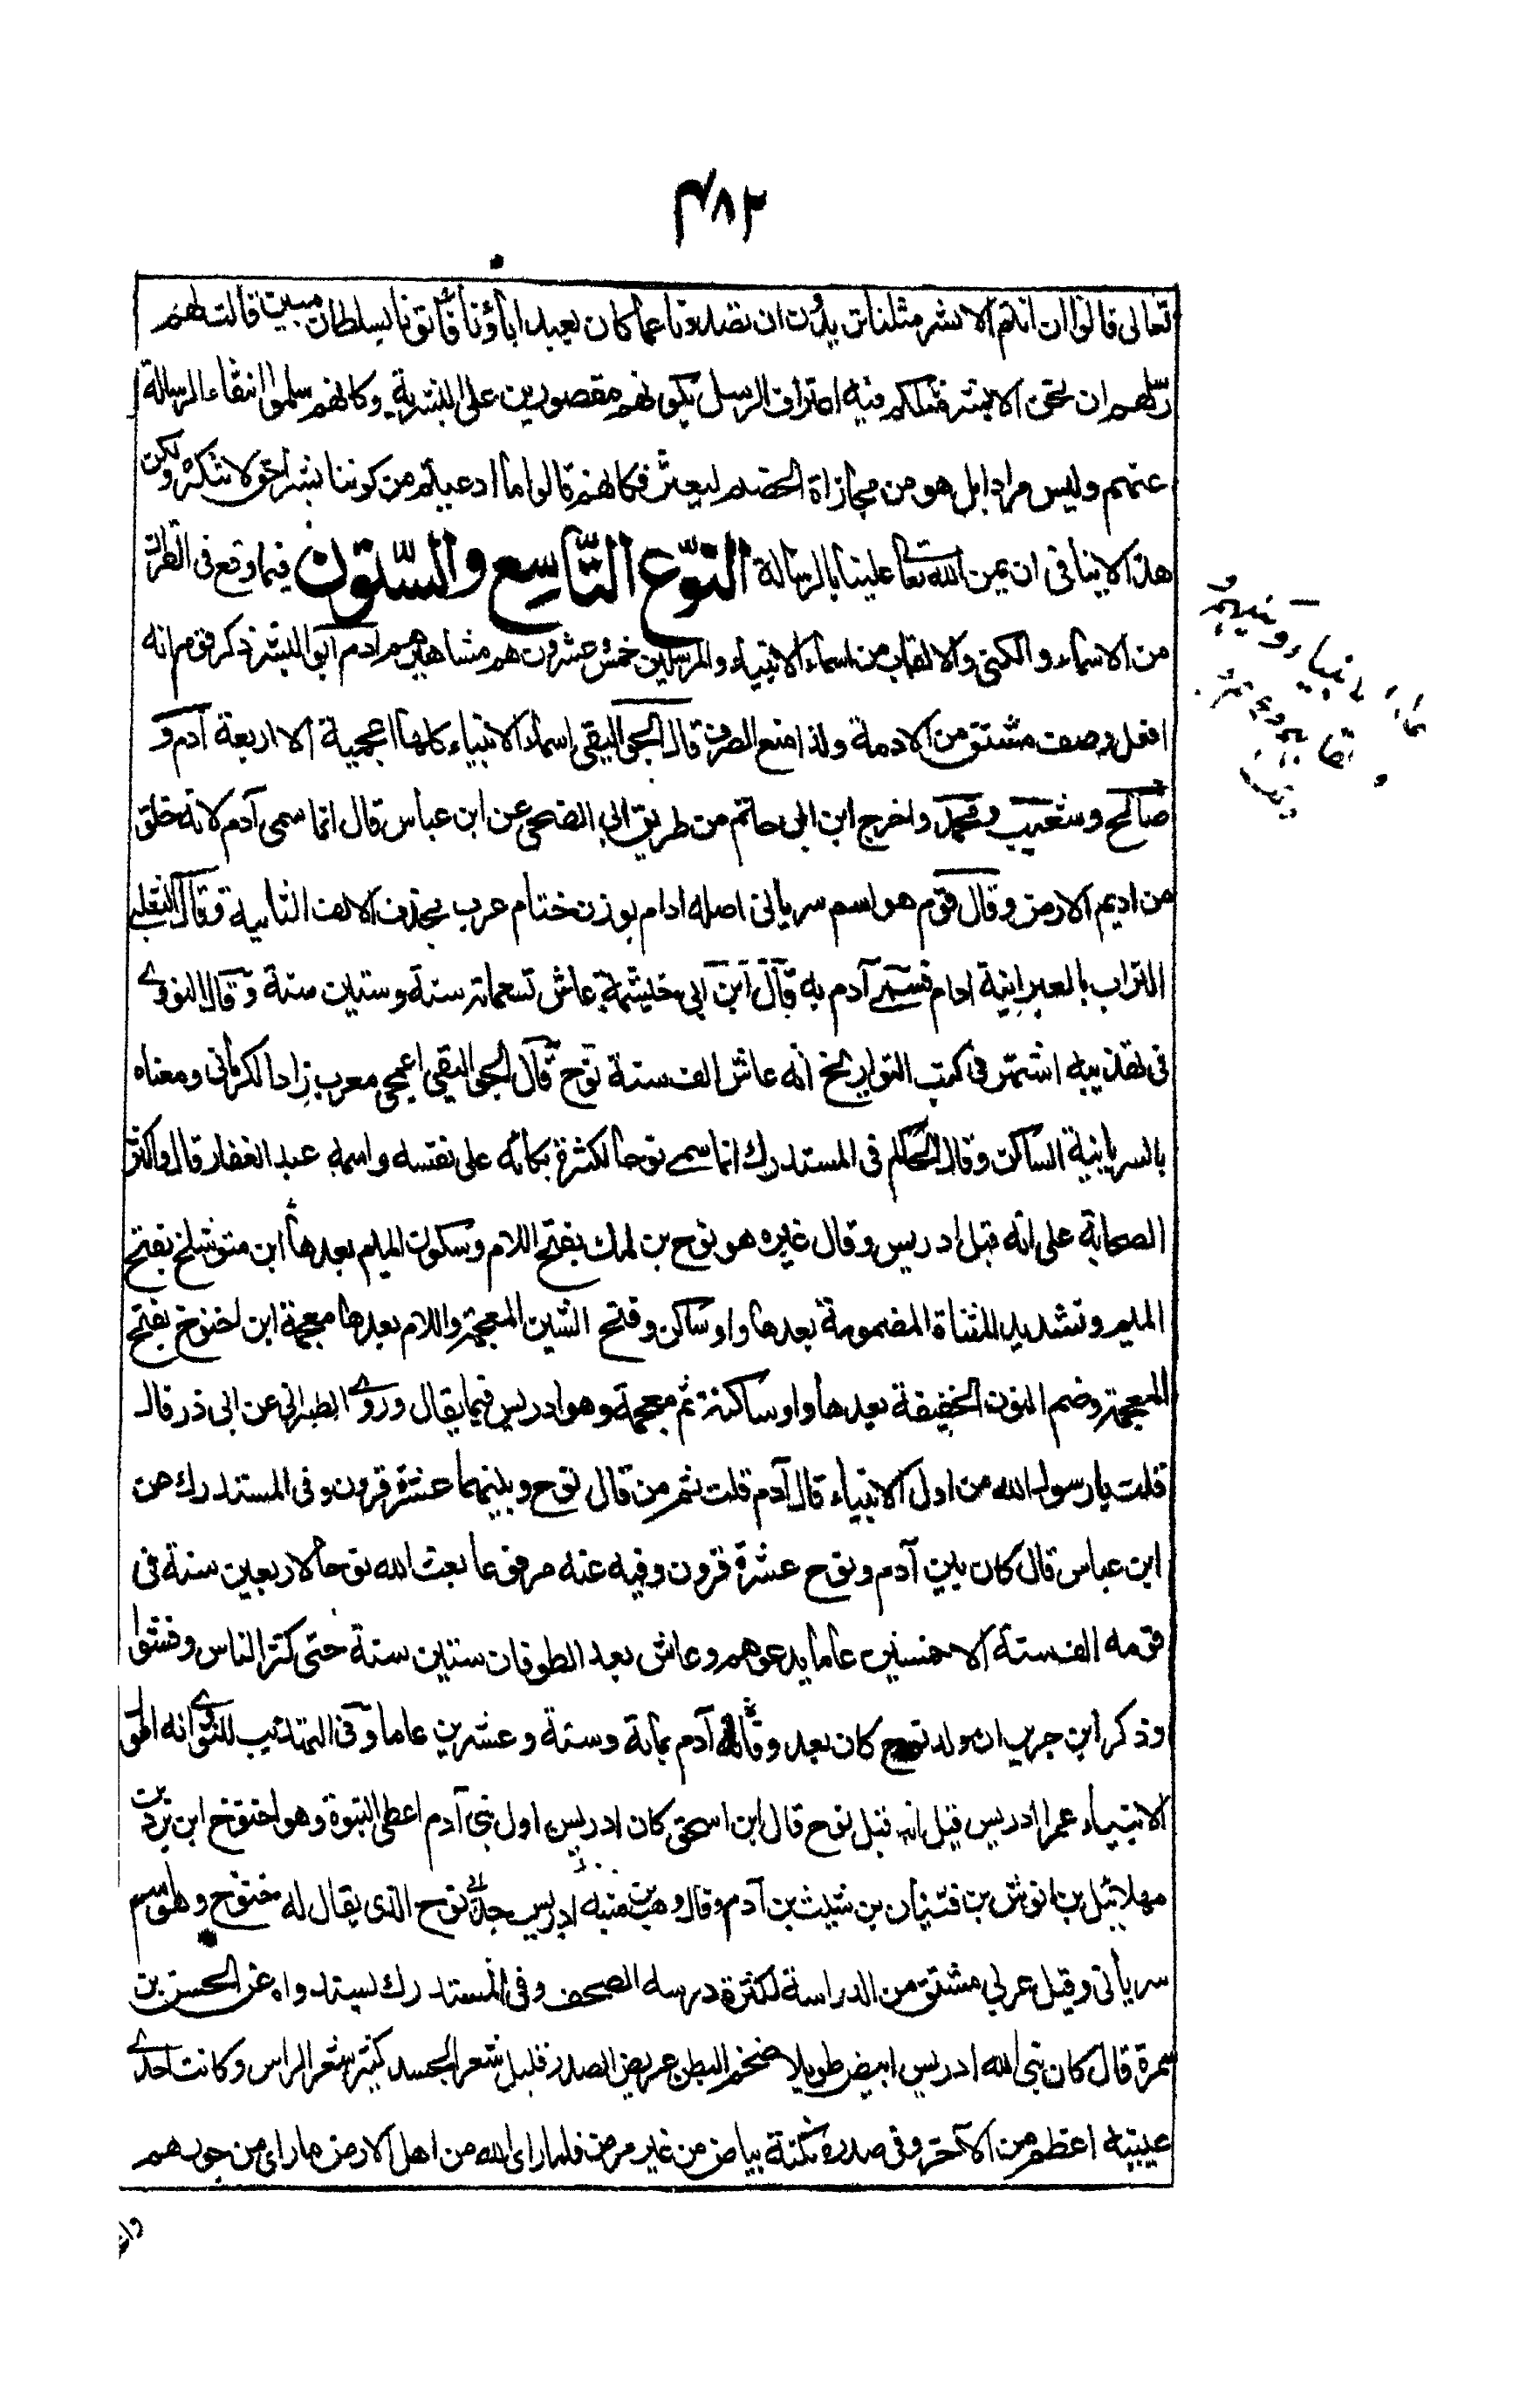 ٤٨٢
تعالى قالوا ان انتم الا بشر مثلنا تريدون ان تصدونا عما كان يعبد اباؤنا فأتونا بسلطان مبين قالت لهم
رسلهم ان نحن الا بشر مثلكم فيه اعتراف الرسل بكونهم مقصورين على البشرية وكانهم سلموا انتفاء الرسالة
عنهم وليس مرادا بل هو من مجازاة الخصم ليعثر فكانهم قالوا ما ادعيتم من كوننا بشرا حق لا ننكره ولكن
هذا لا ينافى ان يمن الله تعا علينا بالرسالة النوع التاسع والستون فيما وقع فى القران
من الاسماء والكنى والالقاب من اسماء الانبياء والمرسلين خمس وعشرون هم مشاهيرهم ادم ابو البشر ذكر قوم انه
افعل وصف مشتق من الادمة ولذا منع الصرف قال الجواليقى اسماء الانبياء كلها اعجمية الا اربعة آدم و
صالح وشعيب ومحمد واخرج ابن ابى حاتم من طريق ابى الضحى عن ابن عباس قال انما سمى آدم لانه خلق
من اديم الارض وقال قوم هو اسم سريانى اصله ادام بوزن ختام عرب بحذف الالف الثانية وقال الثعلبى
التراب بالعبرانية ادام فسمى آدم به قال ابن ابى خيثمة عاش تسعمائة سنة وستين سنة وقال النووى
فى تهذيبه اشتهر فى كتب التواريخ انه عاش الف سنة نوح قال الجواليقى اعجمى معرب زاد الكرمانى ومعناه
بالسريانية الساكن وقال الحاكم فى المستدرك انما سمى نوحا لكثرة بكائه على نفسه واسمه عبد الغفار قال واكثر
الصحابة على انه قبل ادريس وقال غيره هو نوح بن لمك بفتح اللام وسكون الميم بعدها ابن متوشلخ بفتح
الميم وتشديد المثناة المضمومة بعدها واو ساكن وفتح الشين المعجمة واللام بعدها معجمة ابن اخنوخ بفتح
المعجمة وضم النون الخفيفة بعدها واو ساكنة ثم معجمة وهو ادريس فيما يقال وروى الطبرانى عن ابى ذر قال
قلت يا رسول الله من اول الانبياء قال آدم قلت ثم من قال نوح وبينهما عشرة قرون وفى المستدرك عن
ابن عباس قال كان بين آدم ونوح عشرة قرون وفيه عنه مرفوعا بعث الله نوحا لاربعين سنة فى
قومه الف سنة الا خمسين عاما يدعوهم وعاش بعد الطوفان ستين سنة حتى كثر الناس وفشوا
وذكر ابن جرير ان مولد نوح كان بعد وفاة آدم بمائة وستة وعشرين عاما وفى التهذيب للنووى انه اطول
الانبياء عمرا ادريس قيل انه قبل نوح قال ابن اسحق كان ادريس اول بنى آدم اعطى النبوة وهو اخنوخ ابن يرد بن
مهلائيل بن انوش بن قينان بن شيث بن آدم وقال وهب بن منبه ادريس جد نوح الذى يقال له خنوخ وهو اسم
سريانى وقيل عربى مشتق من الدراسة لكثرة درسه الصحف وفى المستدرك بسند واه عن الحسن بن
سمرة قال كان نبى الله ادريس ابيض طويلا ضخم البطن عريض الصدر قليل شعر الجسد كثير شعر الراس وكانت احدى
عينيه اعظم من الآخر وفى صدره نكتة بياض من غير مرض فلما راى الله من اهل الارض ما راى من جورهم